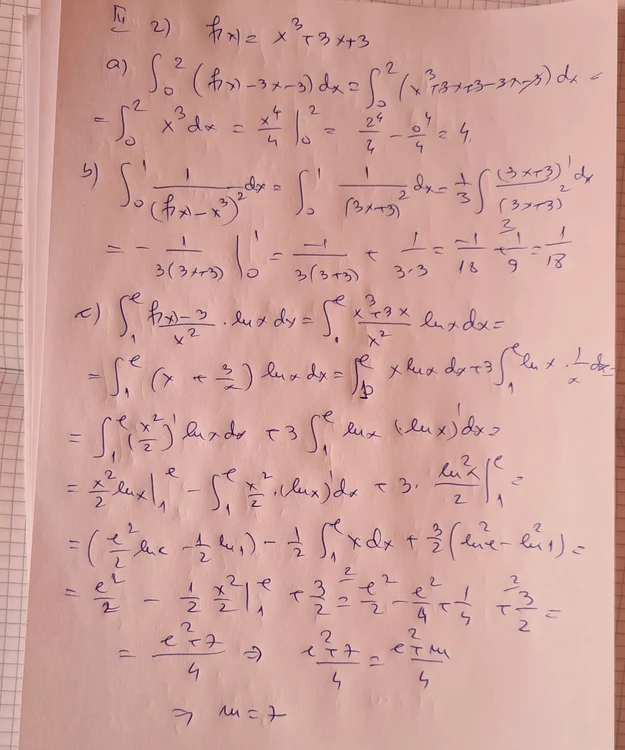 III 2) f(x) = x³+3x+3
a) ∫₀² (f(x)-3x-3)dx = ∫₀² (x³+3x+3-3x-3)dx =
= ∫₀² x³dx = x⁴/4 |₀² = 2⁴/4 - 0⁴/4 = 4.
b) ∫₀¹ 1/(f(x)-x³)² dx = ∫₀¹ 1/(3x+3)² dx = 1/3 ∫ (3x+3)'/(3x+3)² dx
= - 1/3(3x+3) |₀¹ = -1/3(3+3) + 1/3·3 = -1/18 + 1/9 = 1/18
c) ∫₁ᵉ f(x)-3/x² · lnx dx = ∫₁ᵉ x³+3x/x² lnx dx =
= ∫₁ᵉ (x + 3/x) lnx dx = ∫₁ᵉ x lnx dx + 3∫₁ᵉ lnx · 1/x dx =
= ∫₁ᵉ (x²/2)' lnx dx + 3 ∫₁ᵉ lnx (lnx)' dx =
= x²/2 lnx |₁ᵉ - ∫₁ᵉ x²/2 · (lnx)' dx + 3 · ln²x/2 |₁ᵉ =
= (e²/2 lne - 1/2 ln1) - 1/2 ∫₁ᵉ x dx + 3/2 (ln²e - ln²1) =
= e²/2 - 1/2 x²/2 |₁ᵉ + 3/2 = e²/2 - e²/4 + 1/4 + 3/2 =
= e²+7/4 ⇒ e²+7/4 = e²+m/4
⇒ m = 7